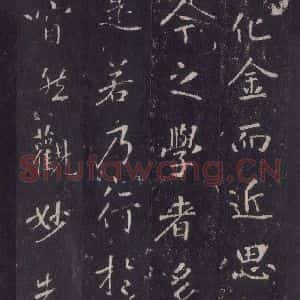 化金而近思
今之學者
若乃行於
然觀妙
Shufawang.CN